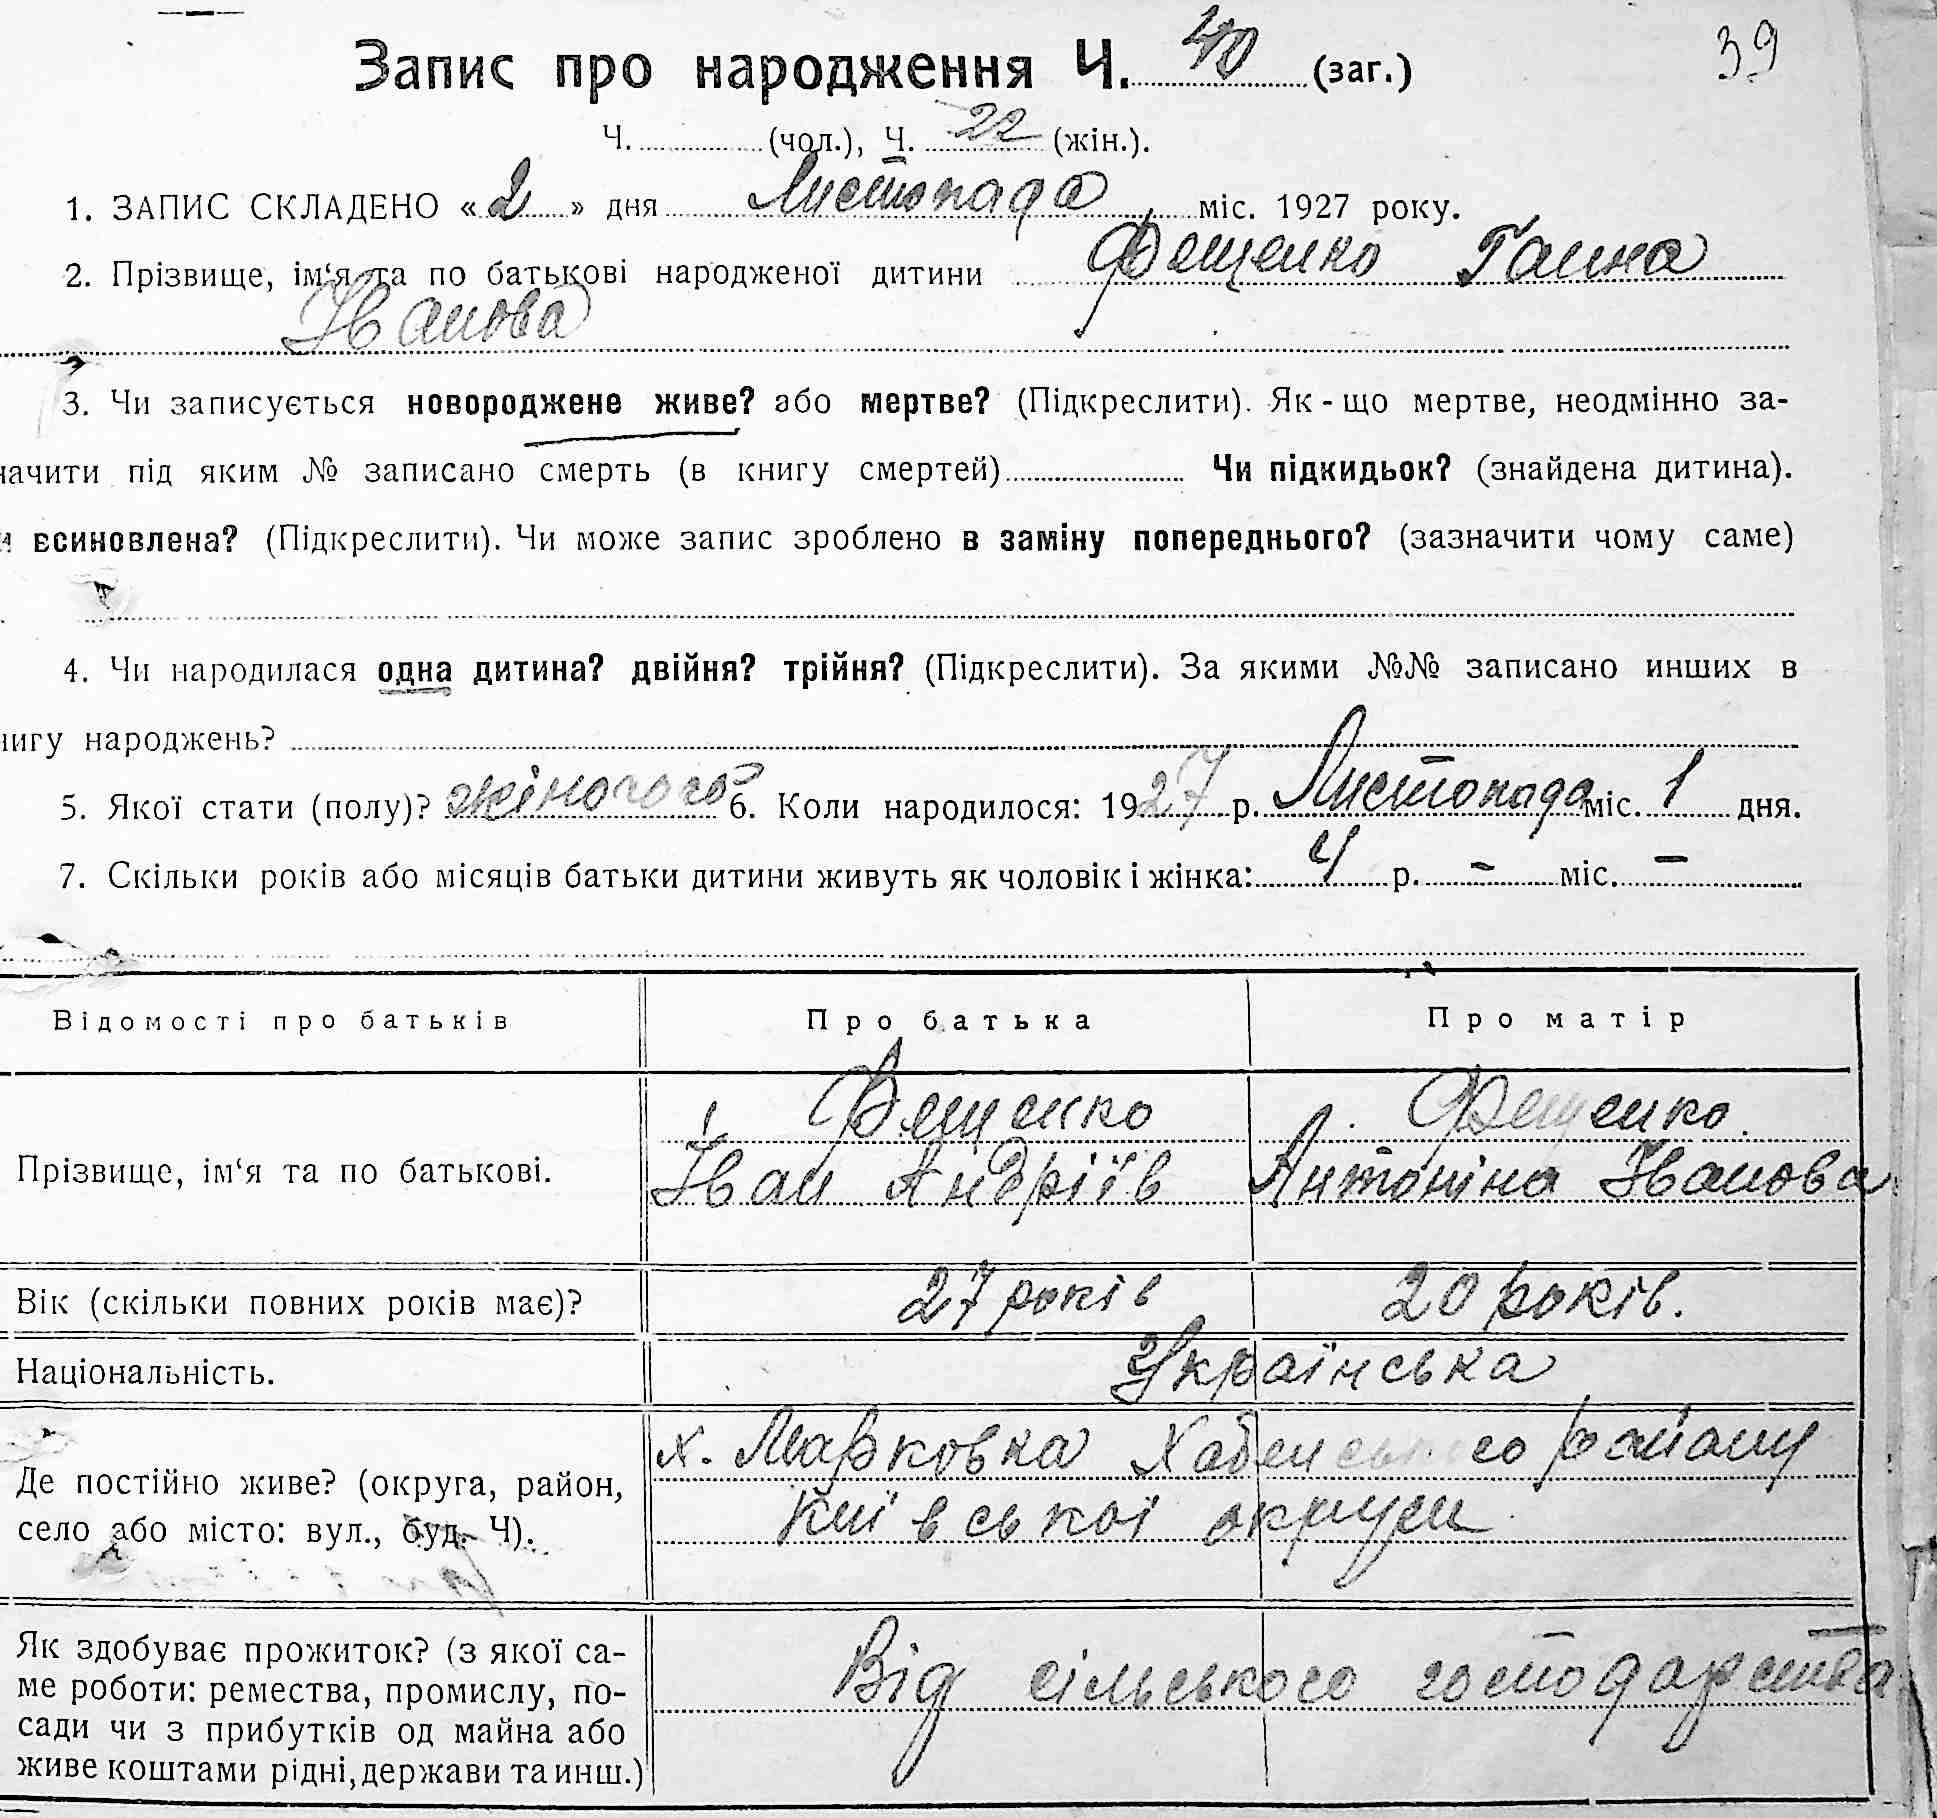 39
Запис про народження Ч. 40 (заг.)
Ч. (чол.), Ч. 22 (жін.).
1. ЗАПИС СКЛАДЕНО «2» дня Листопада міс. 1927 року.
2. Прізвище, ім‘я та по батькові народженої дитини Фещенко Ганна
Іванова
3. Чи записується новороджене живе? або мертве? (Підкреслити). Як-що мертве, неодмінно за-
начити під яким № записано смерть (в книгу смертей) Чи підкидьок? (знайдена дитина).
и всиновлена? (Підкреслити). Чи може запис зроблено в заміну попереднього? (зазначити чому саме)
4. Чи народилася одна дитина? двійня? трійня? (Підкреслити). За якими №№ записано инших в
нигу народжень?
5. Якої стати (полу)? жіночого 6. Коли народилося: 1927 р. Листопада міс. 1 дня.
7. Скільки років або місяців батьки дитини живуть як чоловік і жінка: 4 р. - міс. -
Відомості про батьків Про батька Про матір
Фещенко Фещенко.
Прізвище, ім‘я та по батькові. Іван Андріїв Антоніна Іванова
Вік (скільки повних років має)? 27 років 20 років.
Національність. Українська
х. Марковка Хабенського району
Де постійно живе? (округа, район, Київської округи
село або місто: вул., буд. Ч).
Як здобуває прожиток? (з якої са- Від сільського господарства
ме роботи: ремества, промислу, по-
сади чи з прибутків од майна або
живе коштами рідні, держави та инш.)